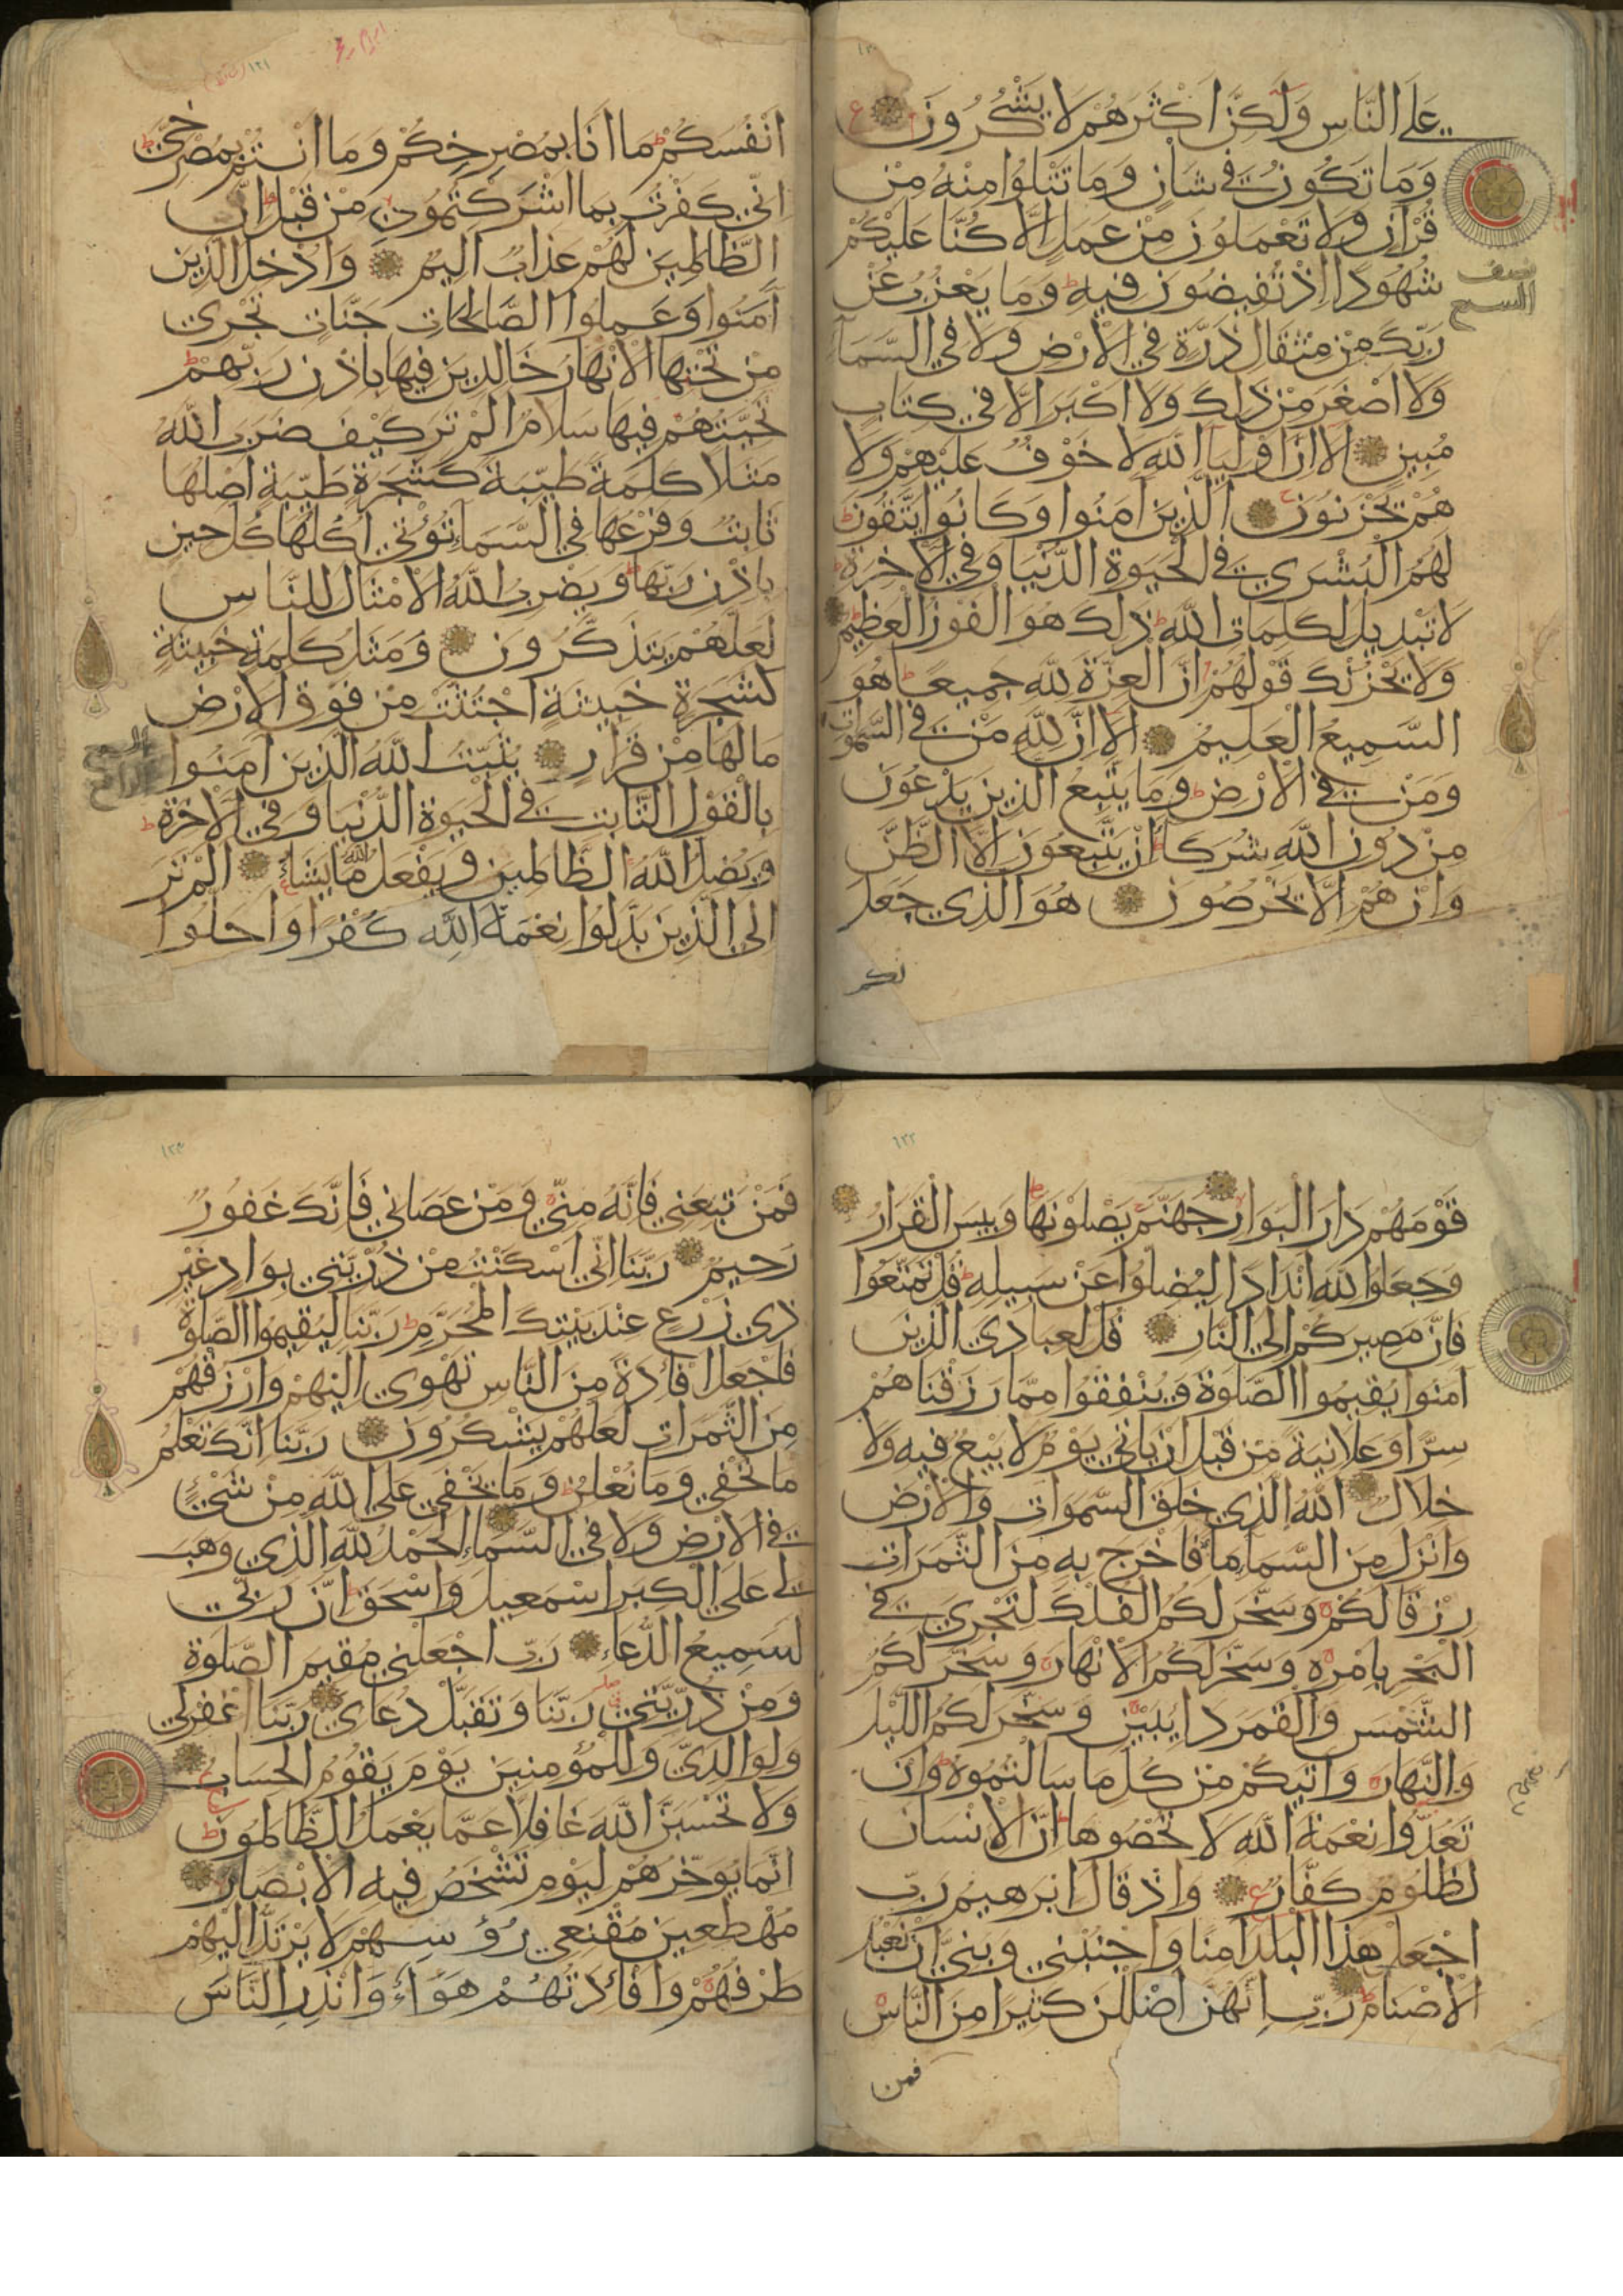 على الناس ولكن اكثرهم لا يشكرون
وما تكون في شان وما تتلوا منه من
قران ولا تعملون من عمل الا كنا عليكم
شهودا اذ تفيضون فيه وما يعزب عن
ربك من مثقال ذرة في الارض ولا في السمآ
ولا اصغر من ذلك ولا اكبر الا في كتاب
مبين الا ان اوليآ الله لا خوف عليهم ولا
هم يحزنون الذين امنوا وكانوا يتقون
لهم البشرى في الحيوة الدنيا وفي الاخرة
لا تبديل لكلمات الله ذلك هو الفوز العظيم
ولا يحزنك قولهم ان العزة لله جميعا هو
السميع العليم الا ان لله من في السموات
ومن في الارض وما يتبع الذين يدعون
من دون الله شركآ ان يتبعون الا الظن
وان هم الا يخرصون هو الذي جعل
لكم
نصف
السبع
١٢١
انفسكم ما انا بمصرخكم وما انتم بمصرخي
اني كفرت بما اشركتمون من قبل ان
الظالمين لهم عذاب اليم وادخل الذين
آمنوا وعملوا الصالحات جنات تجري
من تحتها الانهار خالدين فيها باذن ربهم
تحيتهم فيها سلام الم تر كيف ضرب الله
مثلا كلمة طيبة كشجرة طيبة اصلها
ثابت وفرعها في السمآء تؤتي اكلها كل حين
باذن ربها ويضرب الله الامثال للناس
لعلهم يتذكرون ومثل كلمة خبيثة
كشجرة خبيثة اجتثت من فوق الارض
ما لها من قرار يثبت الله الذين آمنوا
بالقول الثابت في الحيوة الدنيا وفي الآخرة
ويضل الله الظالمين ويفعل الله ما يشاء الم تر
الى الذين بدلوا نعمة الله كفرا واحلوا
١٢٢
قومهم دار البوار جهنم يصلونها وبيس القرار
وجعلوا لله اندادا ليضلوا عن سبيله قل تمتعوا
فان مصيركم الى النار قل لعبادي الذين
امنوا يقيموا الصلوة وينفقوا مما رزقناهم
سرا وعلانية من قبل ان ياتي يوم لا بيع فيه ولا
خلال الله الذي خلق السموات والارض
وانزل من السمآء مآء فاخرج به من الثمرات
رزقا لكم وسخر لكم الفلك لتجري في
البحر بامره وسخر لكم الانهار وسخر لكم
الشمس والقمر دائبين وسخر لكم الليل
والنهار واتيكم من كل ما سالتموه وان
تعدوا نعمة الله لا تحصوها ان الانسان
لظلوم كفار واذ قال ابرهيم رب
اجعل هذا البلد امنا واجنبني وبني ان نعبد
الاصنام رب انهن اضللن كثيرا من الناس
فمن
فمن تبعني فانه مني ومن عصاني فانك غفور
رحيم ربنا اني اسكنت من ذريتي بواد غير
ذي زرع عند بيتك المحرم ربنا ليقيموا الصلوة
فاجعل افئدة من الناس تهوي اليهم وارزقهم
من الثمرات لعلهم يشكرون ربنا انك تعلم
ما نخفي وما نعلن وما يخفى على الله من شيء
في الارض ولا في السماء الحمد لله الذي وهب
لي على الكبر اسمعيل واسحق ان ربي
لسميع الدعاء رب اجعلني مقيم الصلوة
ومن ذريتي ربنا وتقبل دعاي ربنا اغفر لي
ولوالدي وللمؤمنين يوم يقوم الحساب
ولا تحسبن الله غافلا عما يعمل الظالمون
انما يوخرهم ليوم تشخص فيه الابصار
مهطعين مقنعي رؤسهم لا يرتد اليهم
طرفهم وافئدتهم هوآء وانذر الناس